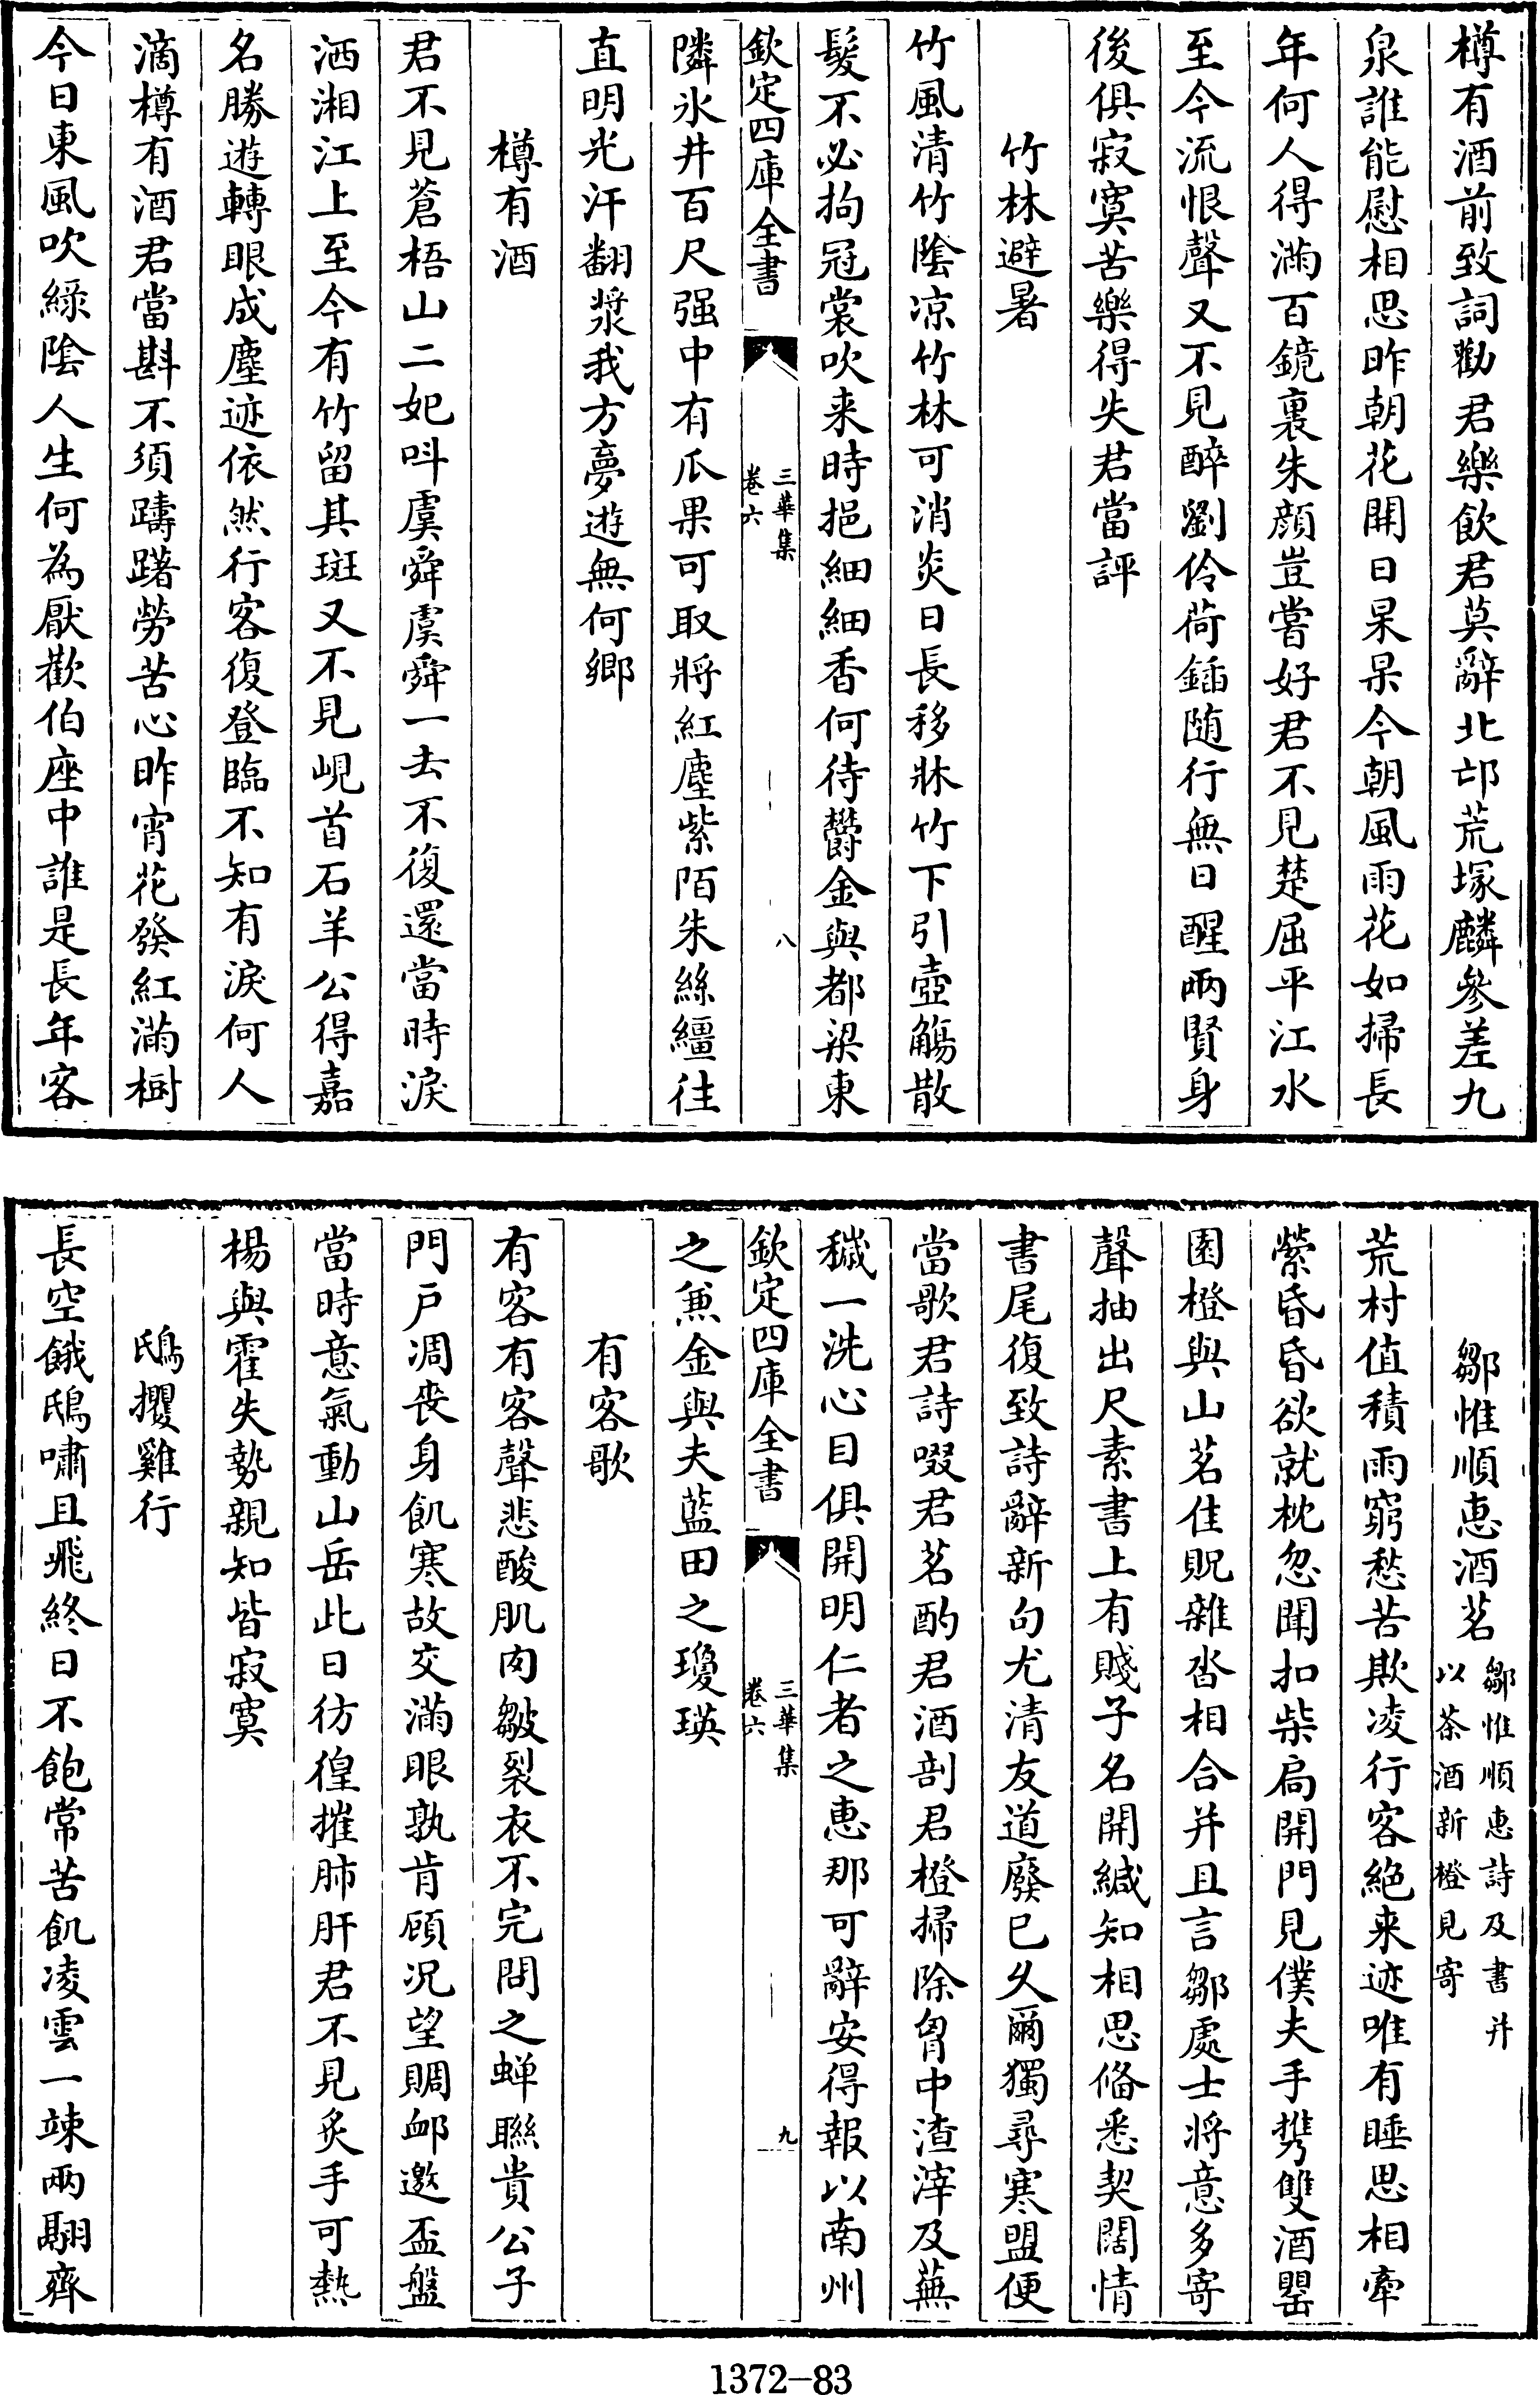 樽有酒前致詞勸君樂飲君莫辭北邙荒塚麟參差九
泉誰能慰相思昨朝花開日杲杲今朝風雨花如掃長
年何人得滿百鏡裏朱顔豈嘗好君不見楚屈平江水
至今流恨聲又不見醉劉伶荷鍤随行無日醒兩賢身
後俱寂寞苦樂得失君當評
竹林避暑
竹風清竹陰凉竹林可消炎日長移牀竹下引壺觴散
髮不必拘冠裳吹来時挹細細香何待欝金與都梁東
欽定四庫全書
三華集
卷六
八
隣氷井百尺强中有瓜果可取將紅塵紫陌朱絲繮往
直明光汗翻漿我方夢遊無何鄉
樽有酒
君不見蒼梧山二妃呌虞舜虞舜一去不復還當時淚
洒湘江上至今有竹留其斑又不見峴首石羊公得嘉
名勝遊轉眼成塵迹依然行客復登臨不知有淚何人
滴樽有酒君當斟不須躊躇勞苦心昨宵花發紅滿樹
今日東風吹綠陰人生何為厭歡伯座中誰是長年客
鄒惟順惠酒茗
鄒惟順惠詩及書并
以茶酒新橙見寄
荒村值積雨窮愁苦欺凌行客絶来迹唯有睡思相牽
縈昏昏欲就枕忽聞扣柴扃開門見僕夫手攜雙酒罌
園橙與山茗佳貺雜沓相合并且言鄒處士將意多寄
聲抽出尺素書上有賤子名開緘知相思俻悉契闊情
書尾復致詩辭新句尤清友道廢已久爾獨尋寒盟便
當歌君詩啜君茗酌君酒剖君橙掃除胷中渣滓及蕪
穢一洗心目俱開明仁者之惠那可辭安得報以南州
欽定四庫全書
三華集
卷六
九
之兼金與夫藍田之瓊瑛
有客歌
有客有客聲悲酸肌肉皺裂衣不完問之蟬聯貴公子
門戸凋喪身飢寒故交滿眼孰肯顧况望賙䘏邀盃盤
當時意氣動山岳此日彷徨摧肺肝君不見炙手可熱
楊與霍失勢親知皆寂寞
鴟攫雞行
長空餓鴟嘯且飛終日不飽常苦飢凌雲一竦兩翮齊
1372-83